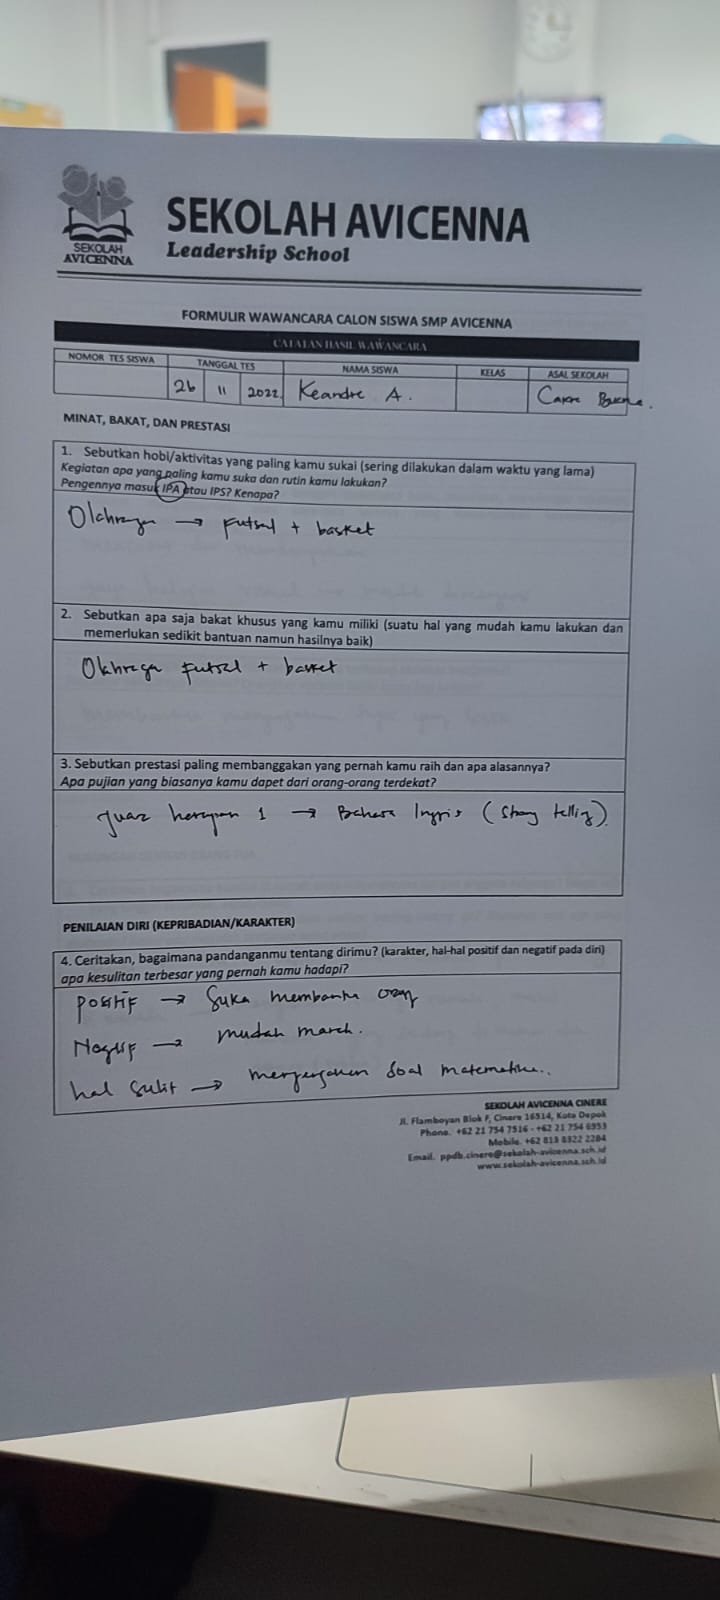 SEKOLAH AVICENNA
Leadership School
SEKOLAH
AVICENNA
FORMULIR WAWANCARA CALON SISWA SMP AVICENNA
CATATAN HASIL WAWANCARA
NOMOR TES SISWA TANGGAL TES NAMA SISWA KELAS ASAL SEKOLAH
26 11 2022 Keandre A.
MINAT, BAKAT, DAN PRESTASI
1. Sebutkan hobi/aktivitas yang paling kamu sukai (sering dilakukan dalam waktu yang lama)
Kegiatan apa yang paling kamu suka dan rutin kamu lakukan?
Pengennya masuk IPA atau IPS? Kenapa?
Olahraga → Futsal + basket
2. Sebutkan apa saja bakat khusus yang kamu miliki (suatu hal yang mudah kamu lakukan dan
memerlukan sedikit bantuan namun hasilnya baik)
Olahraga Futsal + basket
3. Sebutkan prestasi paling membanggakan yang pernah kamu raih dan apa alasannya?
Apa pujian yang biasanya kamu dapet dari orang-orang terdekat?
Juara harapan 1 → Bahasa Inggris (Story telling)
PENILAIAN DIRI (KEPRIBADIAN/KARAKTER)
4. Ceritakan, bagaimana pandanganmu tentang dirimu? (karakter, hal-hal positif dan negatif pada diri)
apa kesulitan terbesar yang pernah kamu hadapi?
Positif → Suka membantu orang
Negatif → mudah marah.
hal sulit → mengerjakan soal matematika..
SEKOLAH AVICENNA CINERE
Jl. Flamboyan Blok F, Cinere 16514, Kota Depok
Phone. +62 21 754 7516 - +62 21 754 6953
Mobile. +62 813 8322 2284
Email. ppdb.cinere@sekolah-avicenna.sch.id
www.sekolah-avicenna.sch.id